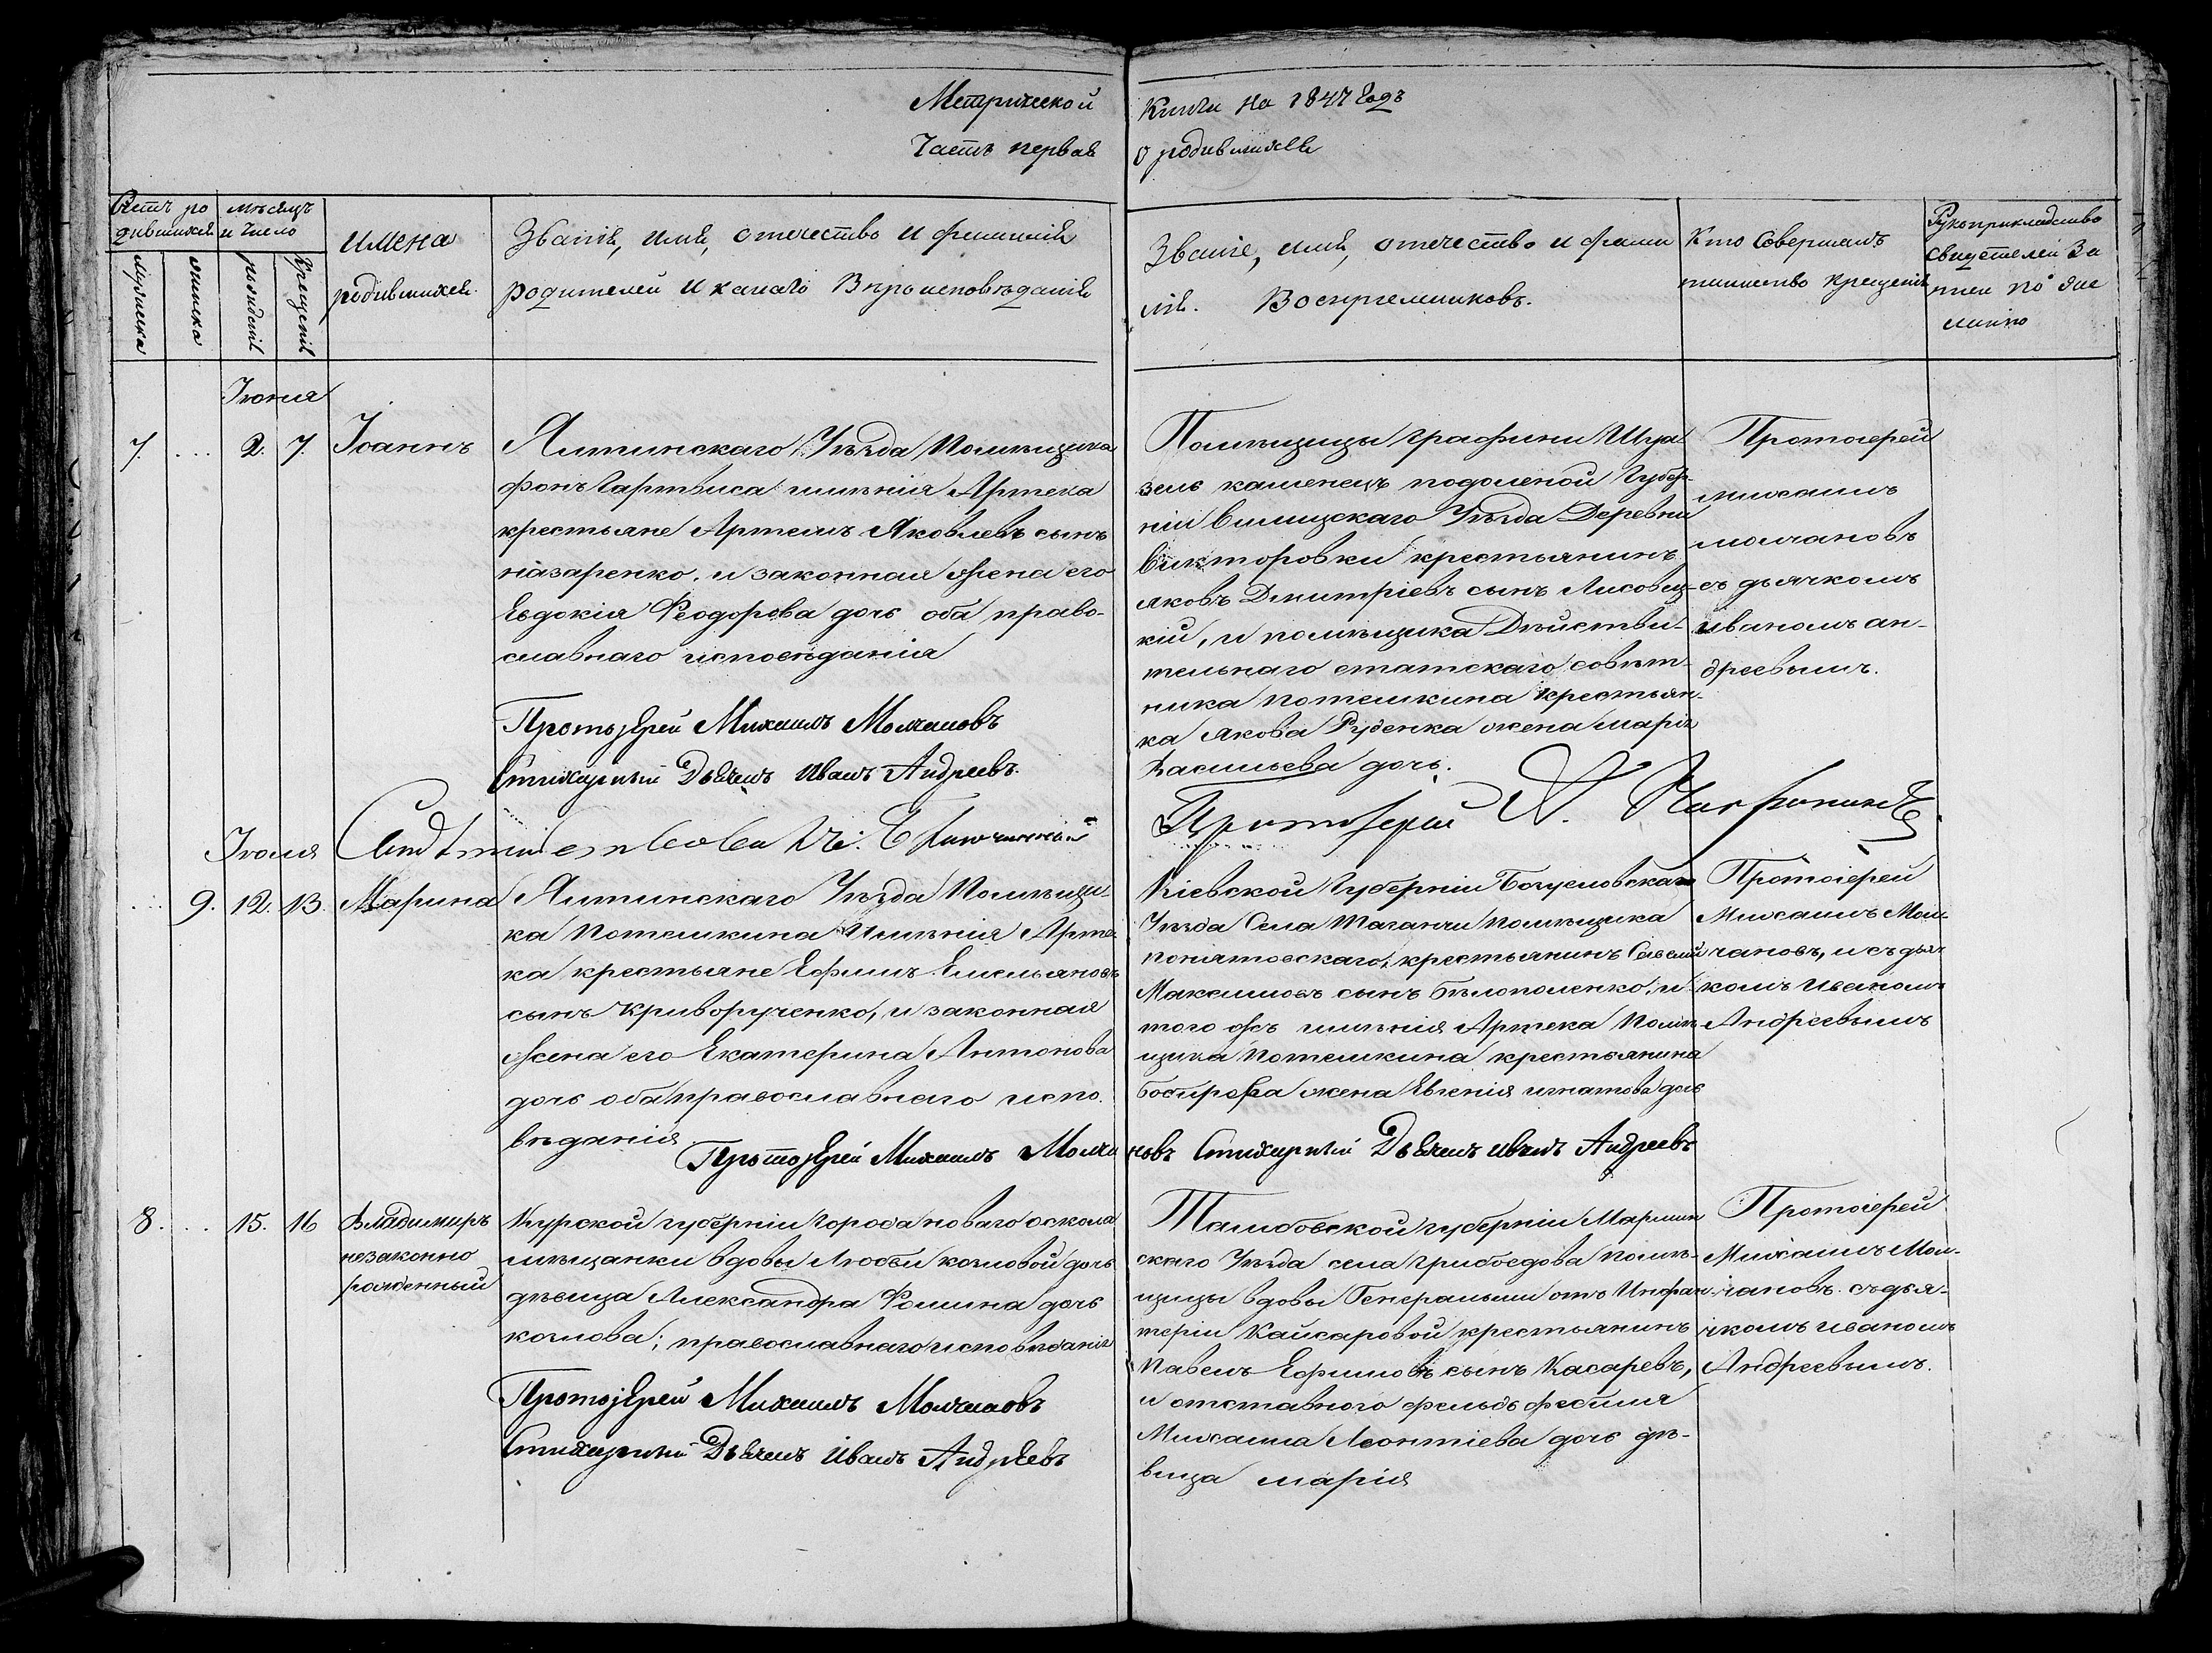 Метрической
Часть первая
Книги на 1847 годъ
о родившихся
Счетъ ро
дившихся
мѣсяцъ
и число
мужеска
женска
рожденія
крещенія
имена
родившихся.
Званіе, имя, отечество и фамилія
родителей и какаго вѣроисповѣданія
Званіе, имя, отечество и фами
лія. Воспріемниковъ.
Кто совершалъ
таинство крещенія
Рукоприкладство
свидетелей за
писи по же
ланію
Іюня
7. ... 2. 7. Іоаннъ
Ялтинскаго Уѣзда Помѣщика
фонъ Гартвиса имѣнія Артека
крестьяне Артемъ Яковлевъ сынъ
назаренко, и законная жена его
Евдокія Феодорова дочь оба право-
славнаго исповѣданія
Протоіерей Михаилъ Молчановъ
Стихарный Дьячекъ Иванъ Андреевъ.
Помѣщицы графини Шуа
зель каменецъ подолской Губер-
ніи Уѣзда Деревни
викторовки крестьянинъ
яковъ Дмитріевъ сынъ Лисовец-
кій, и помѣщика Дѣйстви-
тельнаго статскаго совѣт-
ника потемкина крестьян-
ка Якова Руденка жена марія
Васильева дочь.
Протоіерей
михаилъ
молчановъ
съ дьячкомъ
иваномъ ан-
дреевымъ.
Протоіерей
Іюля
... 9. 12. 13. Марина
Ялтинскаго Уѣзда Помѣщи-
ка Потемкина Имѣнія Арте-
ка крестьяне Ефимъ Емельяновъ
сынъ Криворученко, и законная
жена его Екатерина Антонова
дочь оба православнаго испо-
вѣданія
Протоіерей Михаилъ Молча
новъ Стихарный Дьячекъ иванъ Андреевъ
Кіевской Губерніи Богуславскаго
Уѣзда Села Таганчи помѣщика
понятовскаго, крестьянинъ
Максимовъ сынъ Бѣлополенко, и
того жъ имѣнія Артека помѣ-
щика Потемкина крестьянина
жена Евгенія игнатова дочь
Протоіерей
Михаилъ Мол-
чановъ, и съ дьяч
комъ Иваномъ
Андреевымъ
8. ... 15. 16 Владимиръ
незаконно
рожденный
Курской губерніи города новаго оскола
мѣщанки вдовы Любви козловой дочь
дѣвица Александра Фомина дочь
козлова; православнаго исповѣданія
Протоіерей Михаилъ Молчановъ
Стихарный Дьячекъ Иванъ Андреевъ
Тамбовской губерніи
скаго Уѣзда села Грибоедова помѣ-
щицы вдовы Генеральши отъ Инфан-
теріи Кайсаровой крестьянинъ
Павелъ Ефимовъ сынъ Касаревъ,
и отставного фельдъ фебеля
Михаила Леонтіева дочь дѣ-
вица марія
Протоіерей
Михаилъ Мол-
чановъ. съ дья-
чкомъ иваномъ
Андреевымъ.